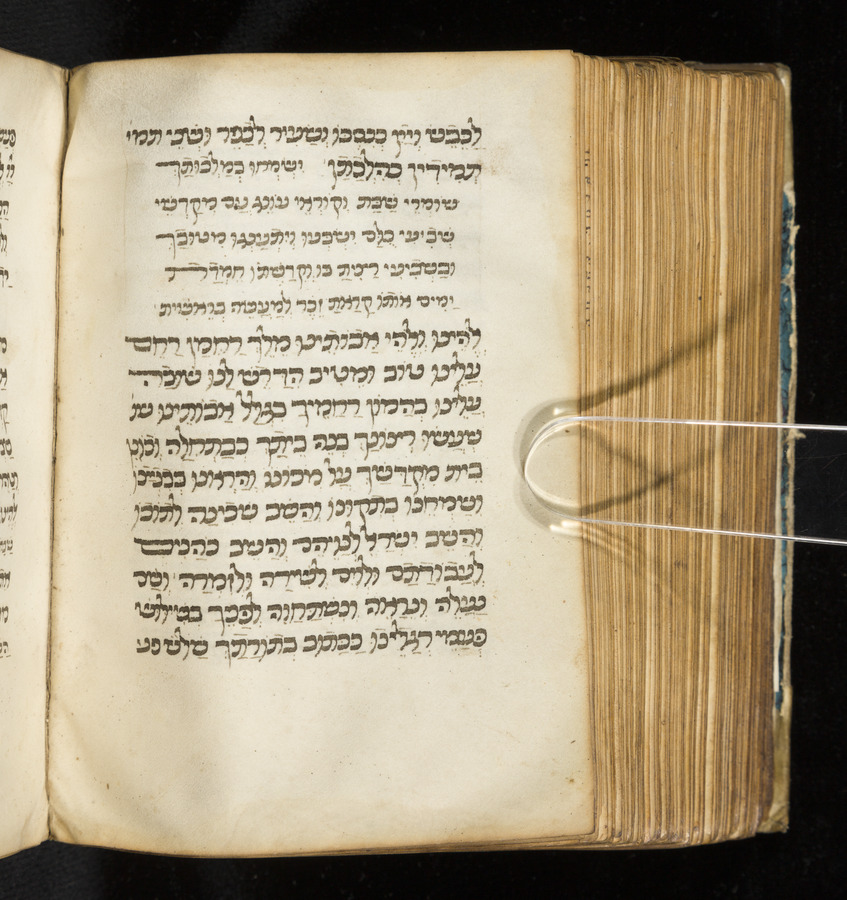 לכבש ויין כנסכו ושעיר לכפר ושני תמי
תמידין כהלכתן ישמחו במלכותך
שומרי שבת וקוראי עונג עם מקדשי
שביעי כלם ישבעו ויתענגו מטובך
ובשביעי רצית בו וקדשתו חמדת
ימים אותו קראת זכר למעשה בראשית
אלהינו ואלהי אבותינו מלך רחמן רחם
עלינו טוב ומטיב הדרש לנו שובה
עלינו בהמון רחמיך בגלל אבותינו שע
שעשו רצונך בנה ביתך כבתחלה וכונן
בית מקדשך על מכונו והראינו בבניינו
ושמחנו בתקונו והשב שכינה לתוכו
והשב ישראל לנויהם והשב כהנים
לעבודתם ולוים לשירה ולזמרה ושם
נעלה ונראה ונשתחוה לפניך בשלוש
פעמי רגלינו ככתוב בתורתך שלש פע